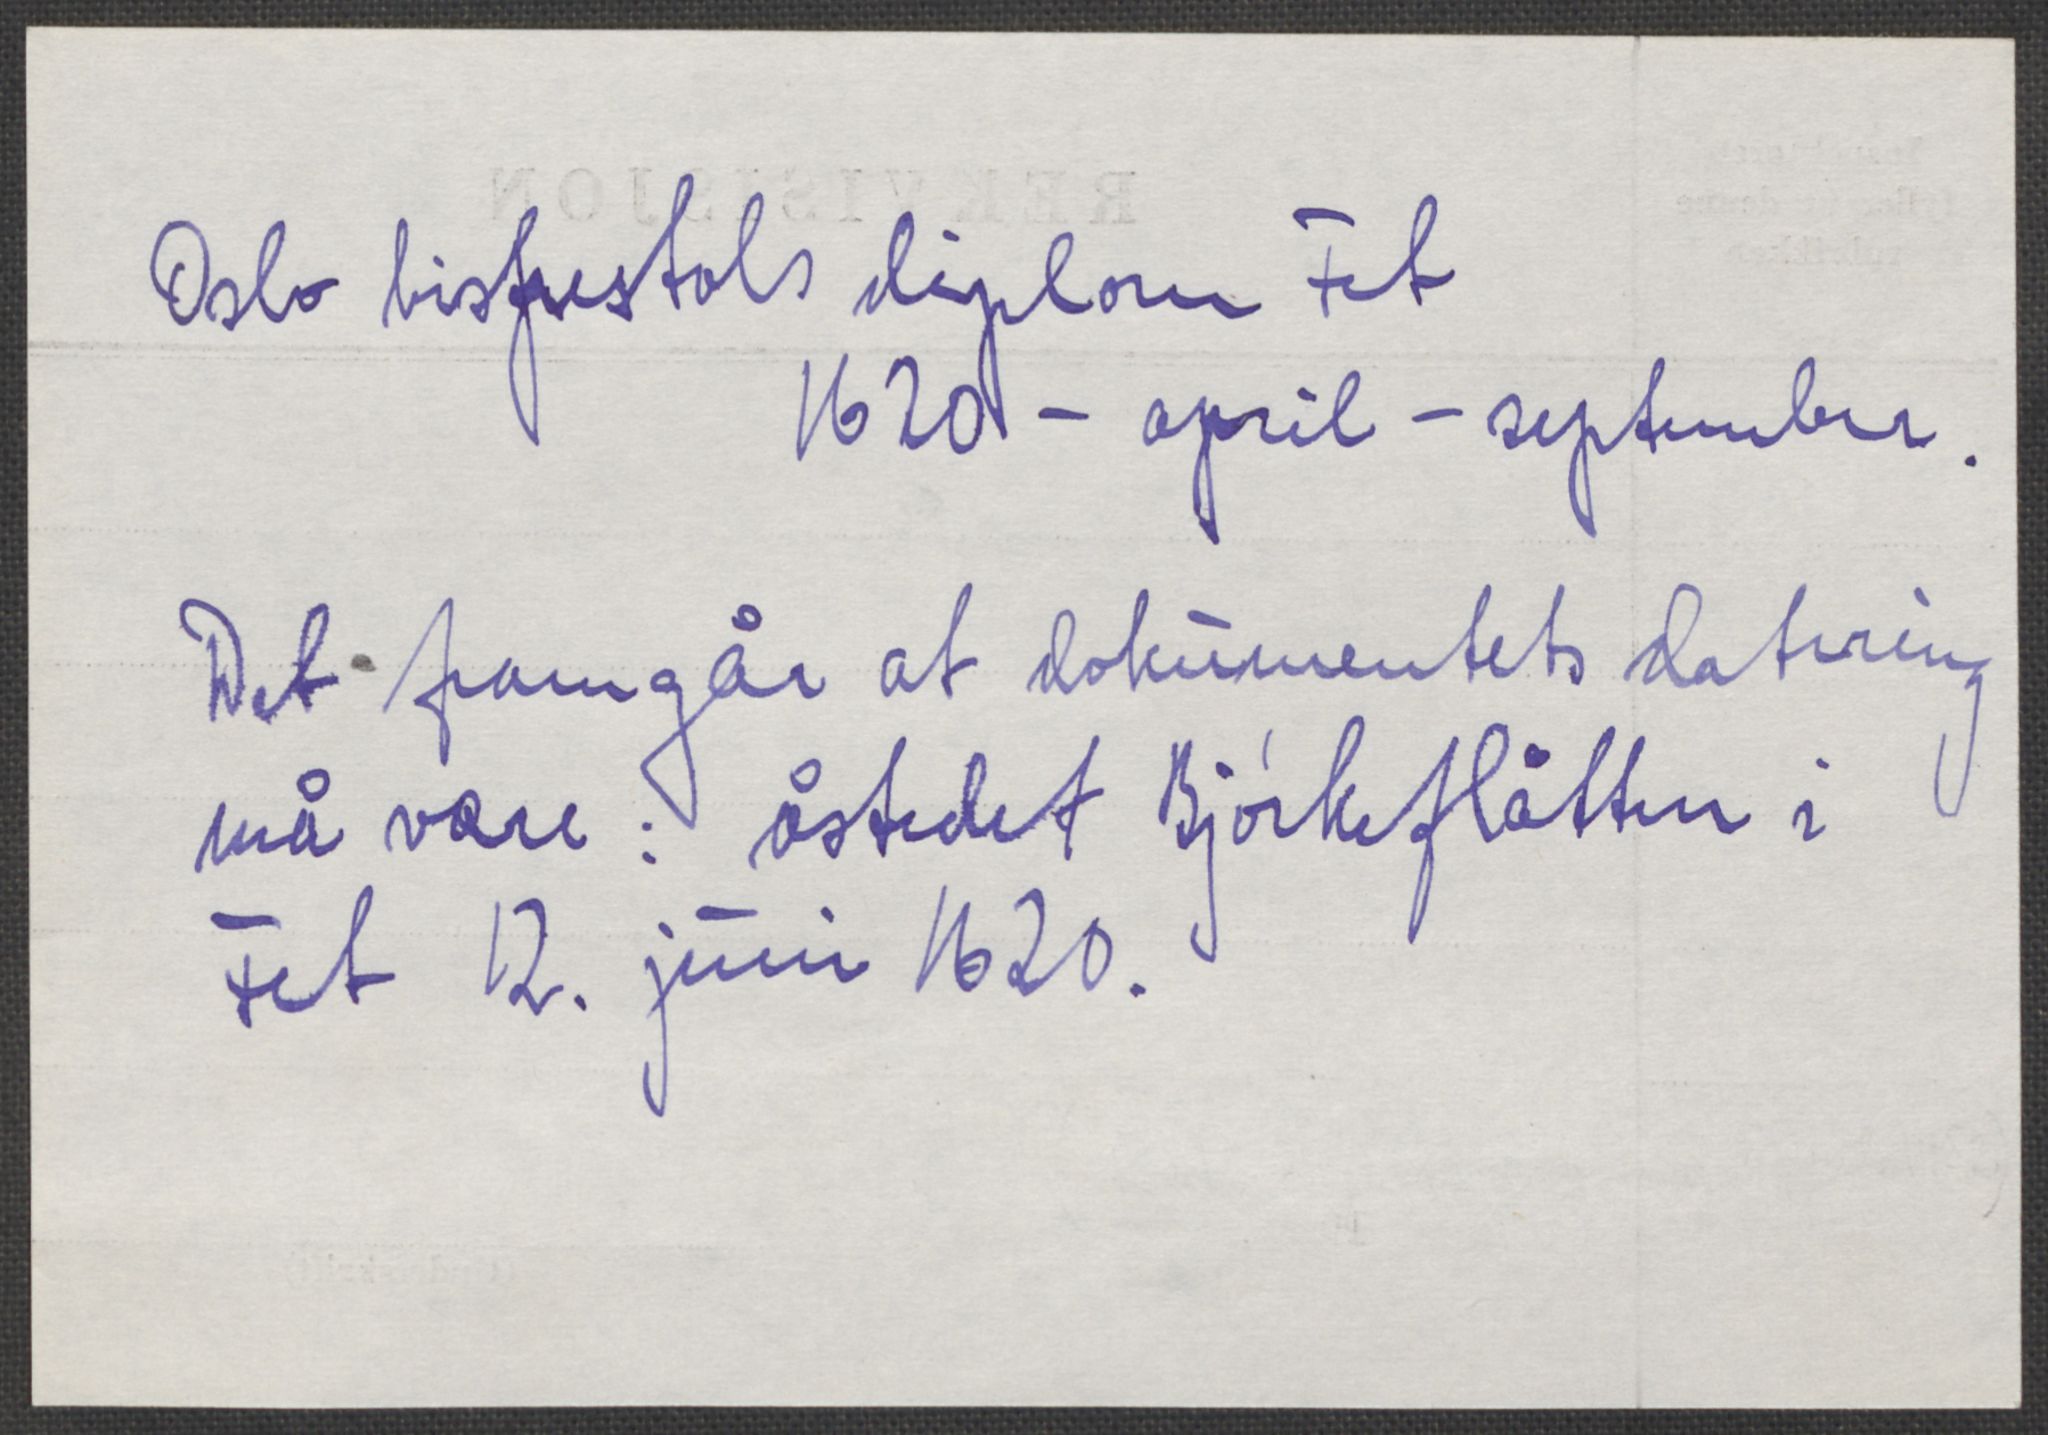 Oslo bispestols diplom Fet
1620 - april - september.
Det framgår at dokumentets datering
må være : åstedet Bjørkeflåtten i
Fet 12. juni 1620.
REKVISISJON
(Underskrift)